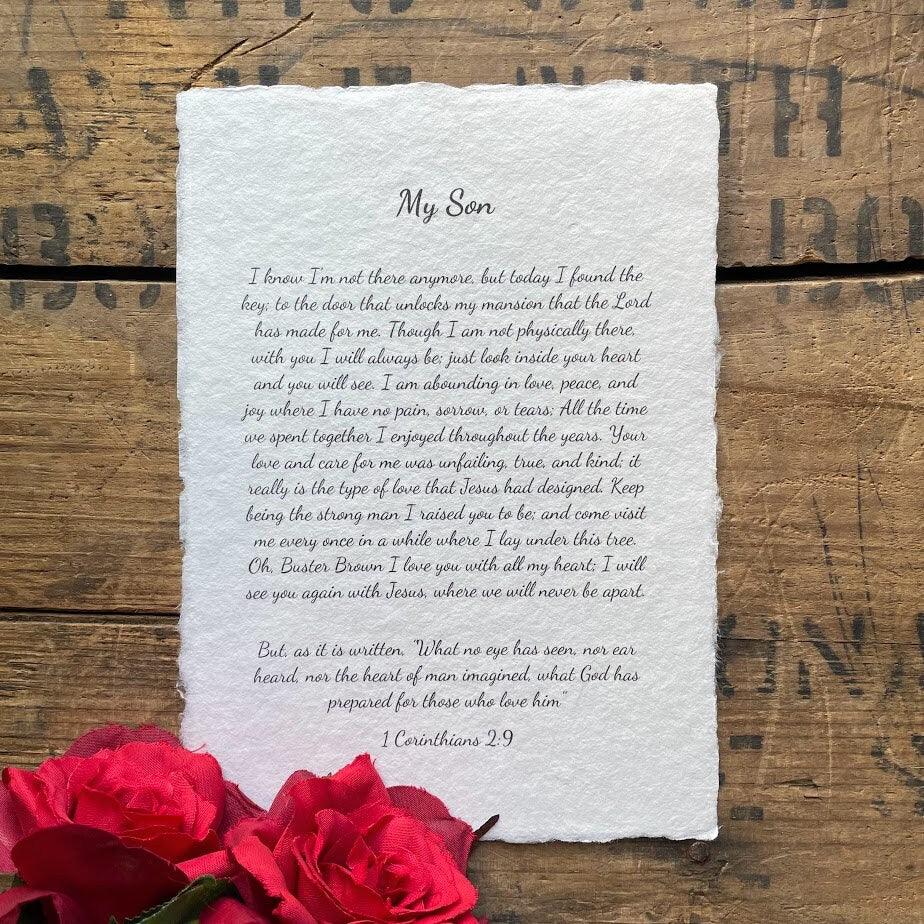 My Son
I know I'm not there anymore, but today I found the
key; to the door that unlocks my mansion that the Lord
has made for me. Though I am not physically there,
with you I will always be; just look inside your heart
and you will see. I am abounding in love, peace, and
joy where I have no pain, sorrow, or tears; All the time
we spent together I enjoyed throughout the years. Your
love and care for me was unfailing, true, and kind; it
really is the type of love that Jesus had designed. Keep
being the strong man I raised you to be; and come visit
me every once in a while where I lay under this tree.
Oh, Buster Brown I love you with all my heart; I will
see you again with Jesus, where we will never be apart.
But, as it is written, "What no eye has seen, nor ear
heard, nor the heart of man imagined, what God has
prepared for those who love him"
1 Corinthians 2:9